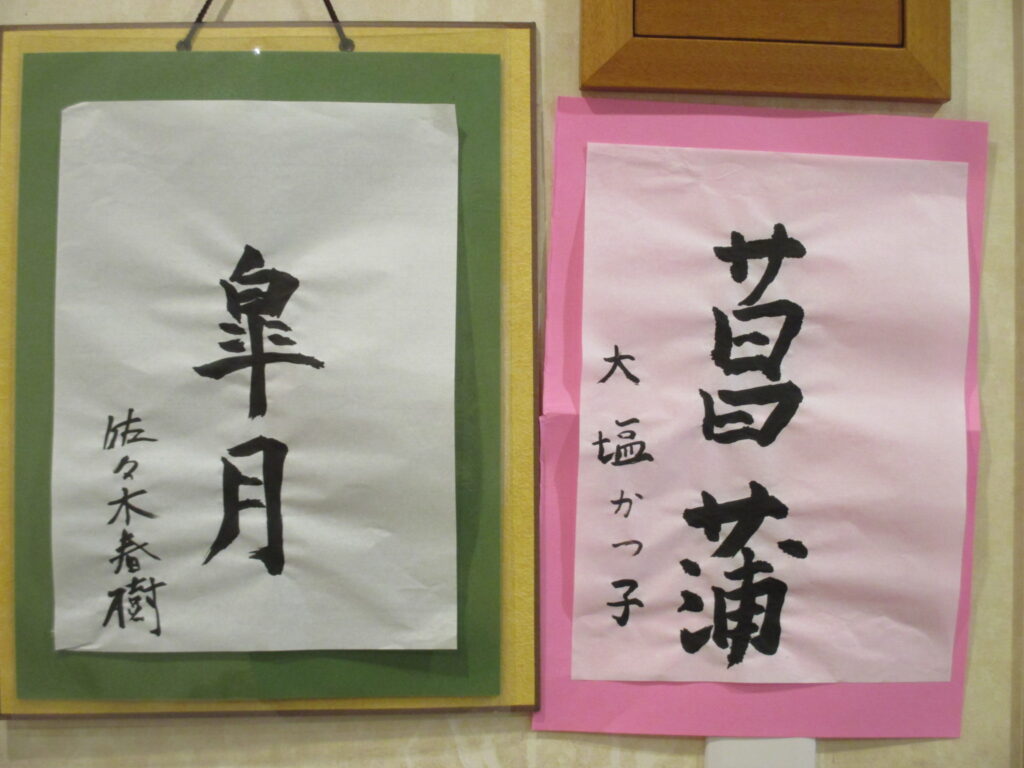 皐月
佐々木春樹
菖蒲
大塩かつ子